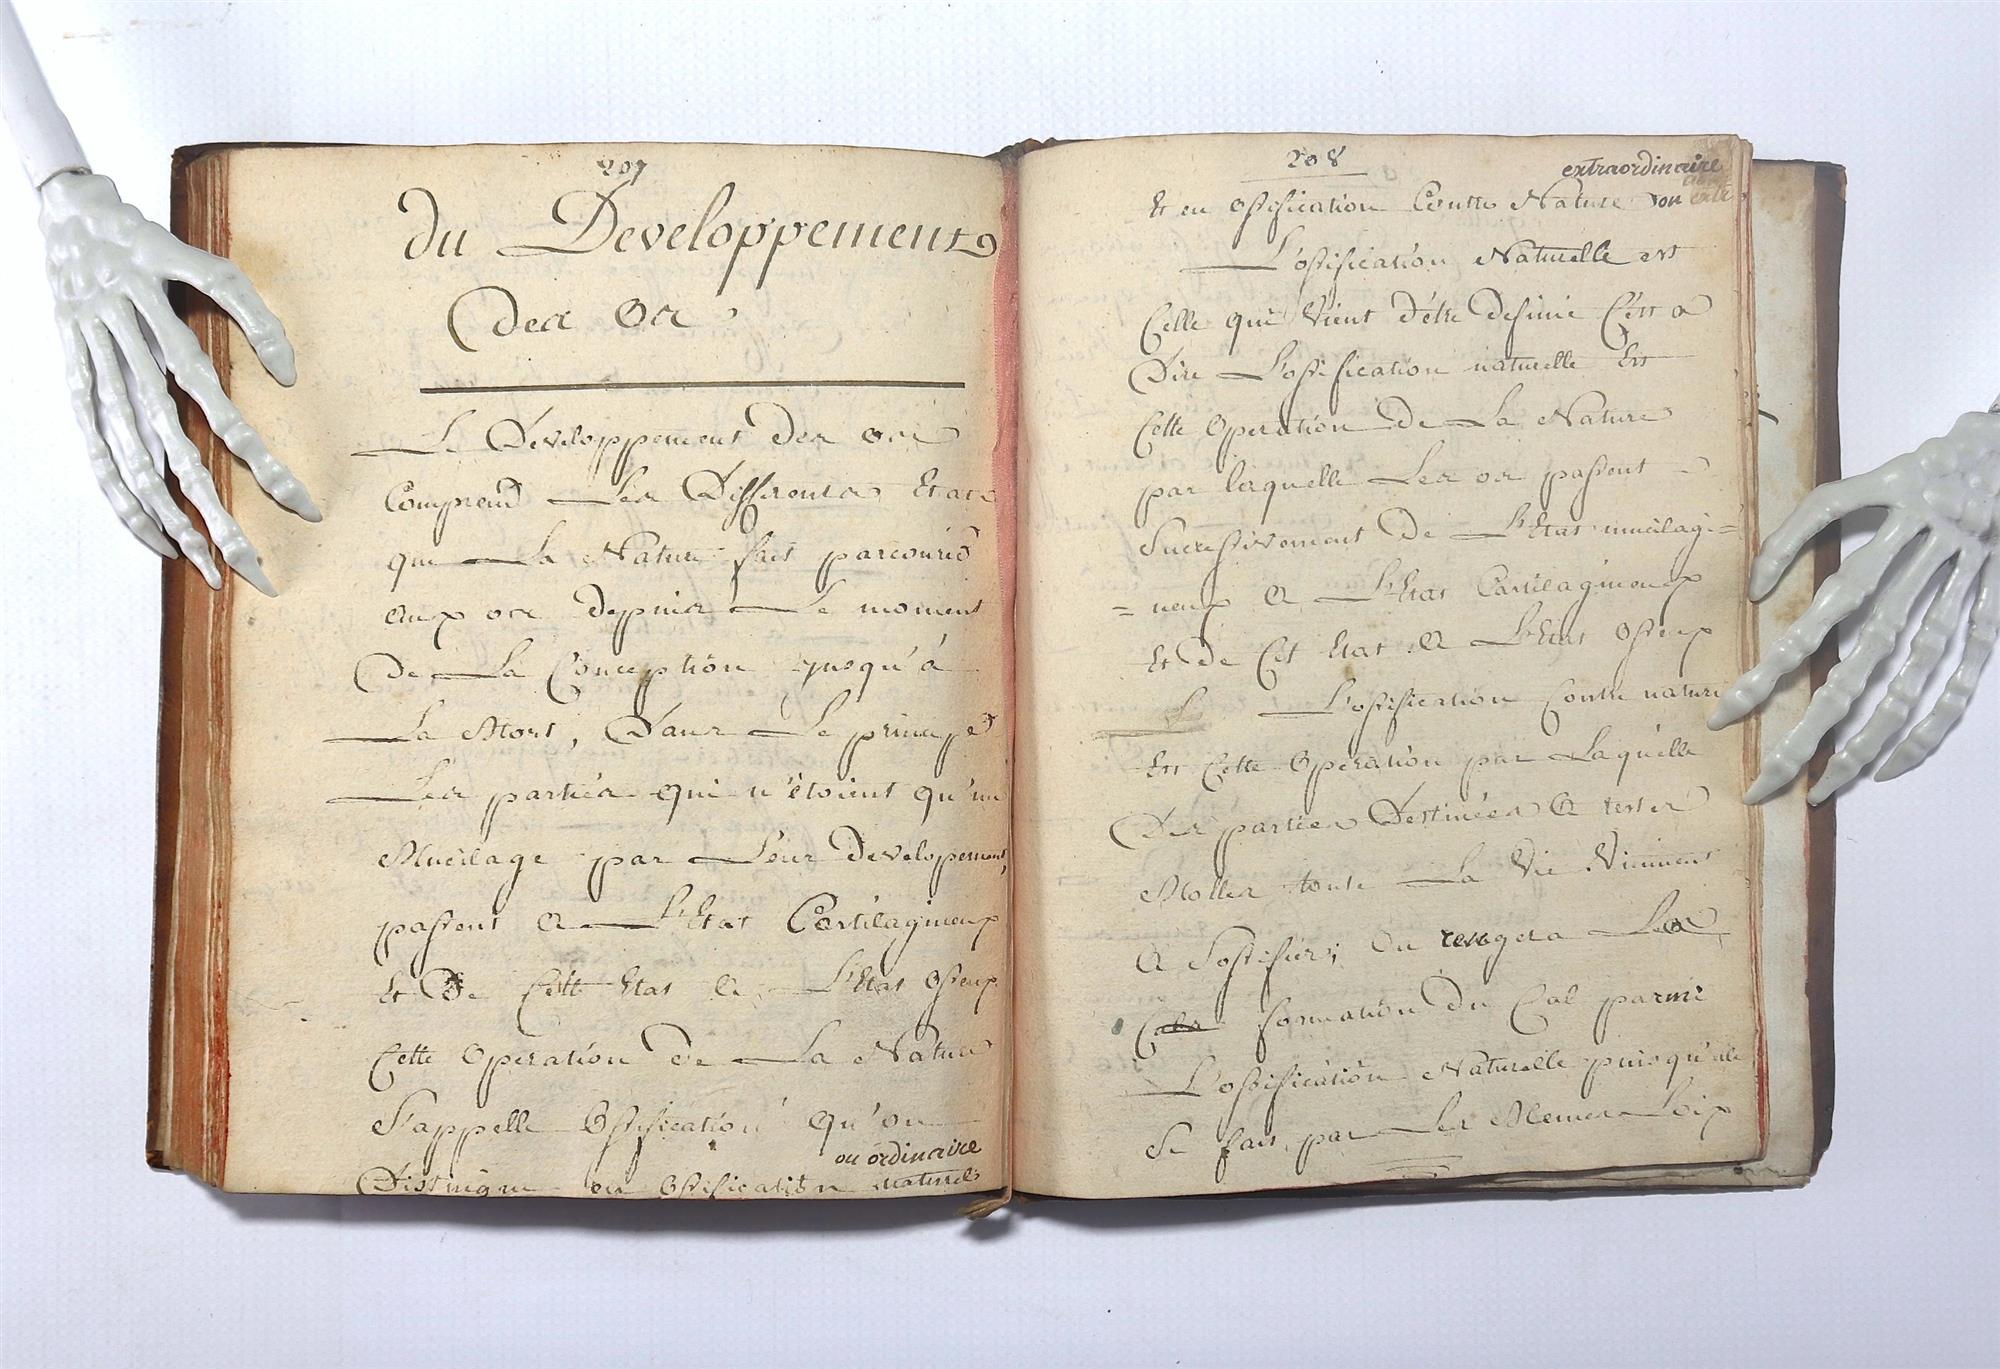 207
du Developpement
des os.
Le Developpement des os
Comprend Les Differents Etats
que La Nature fait parcourir
aux os depuis Le moment
De La Conception jusqu'à
La Mort, Dans Le principe
Les partiés qui n'étoient qu'un
Mucilage par Leur developement,
passent a L'Etat Cartilagineux
Et De Cette Etat a L'Etat Osseux
Cette Operation de La Nature
S'appelle Ossification qu'on
ou ordinaire
Distingue en Ossification naturel
208
extraordinaire
Et en Ossification Contre Nature ou
L'ossification Naturelle est
Celle qui Vient d'étre definie C'est a
Dire L'ossification naturelle Est
Cette Operation De La Nature
par laquelle Les os passent
Successivement De L'Etat mucilagi=
=neux a L'Etat Cartilagineux
Et De Cet Etat a L'Etat Osseux
L'ossification Contre nature
Est Cette Operation par Laquelle
Des parties Destinées a rester
Molles toute La Vie Viennent
a S'ossifier; On rengera La
formation du Cal parmi
L'ossification Naturelle puisqu'ele
Se fait par Les Memes Loix